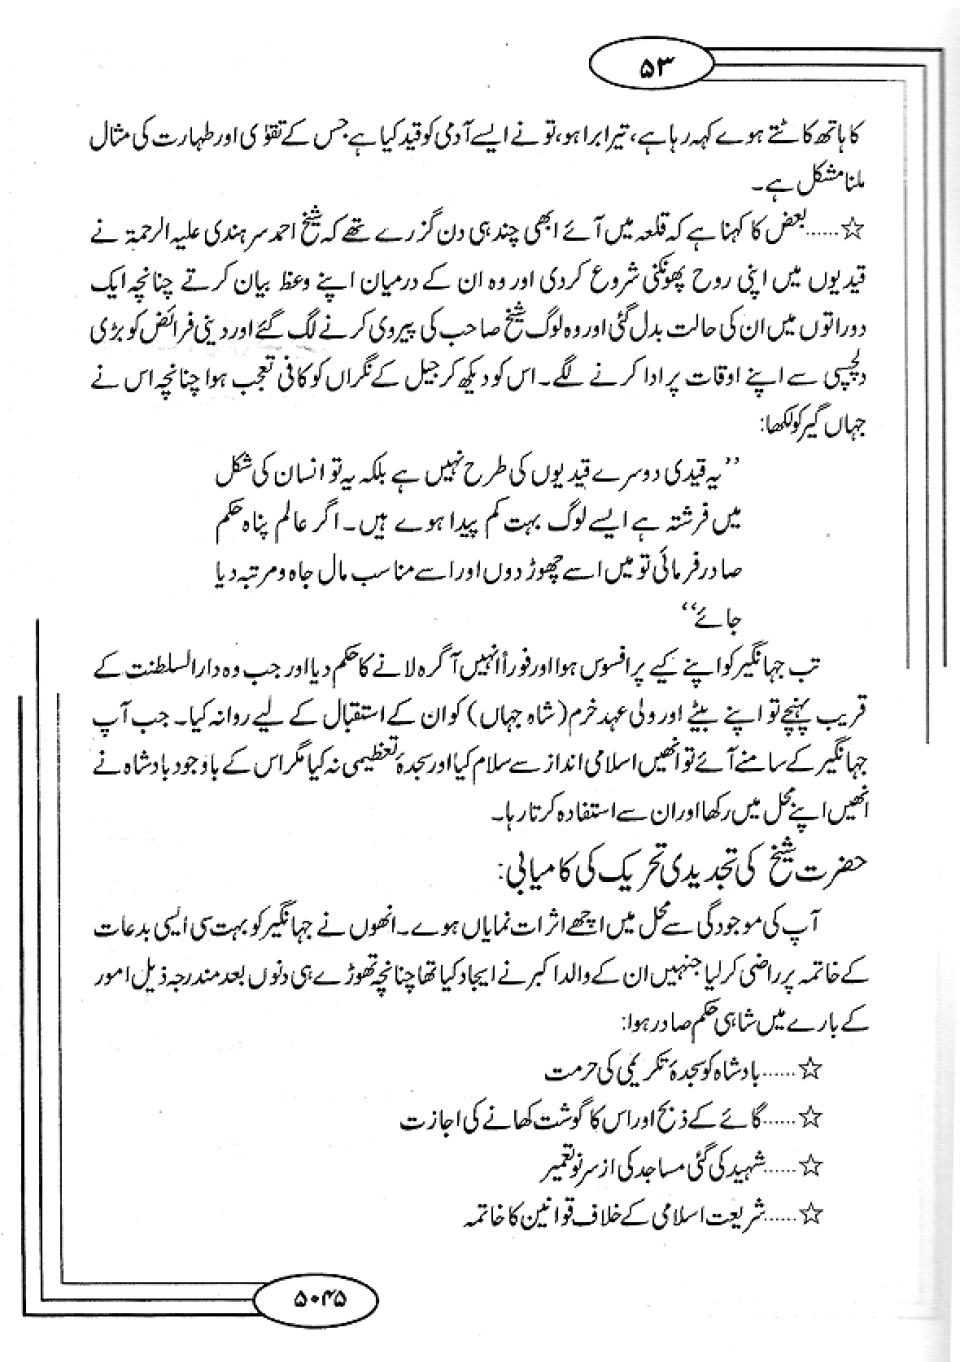 ۵۳
کا ہاتھ کاٹتے ہوے کہہ رہا ہے، تیرا برا ہو، تو نے ایسے آدمی کو قید کیا ہے جس کے تقوٰی اور طہارت کی مثال
ملنا مشکل ہے۔
☆......بعض کا کہنا ہے کہ قلعہ میں آئے ابھی چند ہی دن گزرے تھے کہ شیخ احمد سرہندی علیہ الرحمۃ نے
قیدیوں میں اپنی روح پھونکنی شروع کردی اور وہ ان کے درمیان اپنے وعظ بیان کرتے چنانچہ ایک
دوراتوں میں ان کی حالت بدل گئی اور وہ لوگ شیخ صاحب کی پیروی کرنے لگ گئے اور دینی فرائض کو بڑی
دلچسپی سے اپنے اوقات پر ادا کرنے لگے۔ اس کو دیکھ کر جیل کے نگراں کو کافی تعجب ہوا چنانچہ اس نے
جہاں گیر کو لکھا:
’’یہ قیدی دوسرے قیدیوں کی طرح نہیں ہے بلکہ یہ تو انسان کی شکل
میں فرشتہ ہے ایسے لوگ بہت کم پیدا ہوے ہیں۔ اگر عالم پناہ حکم
صادر فرمائی تو میں اسے چھوڑ دوں اور اسے مناسب مال جاہ و مرتبہ دیا
جائے‘‘
تب جہانگیر کو اپنے کیے پر افسوس ہوا اور فوراً انہیں آگرہ لانے کا حکم دیا اور جب وہ دارالسلطنت کے
قریب پہنچے تو اپنے بیٹے اور ولی عہد خرم (شاہ جہاں) کو ان کے استقبال کے لیے روانہ کیا۔ جب آپ
جہانگیر کے سامنے آئے تو انھیں اسلامی انداز سے سلام کیا اور سجدۂ تعظیمی نہ کیا مگر اس کے باوجود بادشاہ نے
انھیں اپنے محل میں رکھا اور ان سے استفادہ کرتا رہا۔
حضرت شیخ کی تجدیدی تحریک کی کامیابی:
آپ کی موجودگی سے محل میں اچھے اثرات نمایاں ہوے۔ انھوں نے جہانگیر کو بہت سی ایسی بدعات
کے خاتمہ پر راضی کرلیا جنہیں ان کے والد اکبر نے ایجاد کیا تھا چنانچہ تھوڑے ہی دنوں بعد مندرجہ ذیل امور
کے بارے میں شاہی حکم صادر ہوا:
☆......بادشاہ کو سجدۂ تکریمی کی حرمت
☆......گائے کے ذبح اور اس کا گوشت کھانے کی اجازت
☆......شہید کی گئی مساجد کی از سرنو تعمیر
☆......شریعت اسلامی کے خلاف قوانین کا خاتمہ
۵۰۴۵